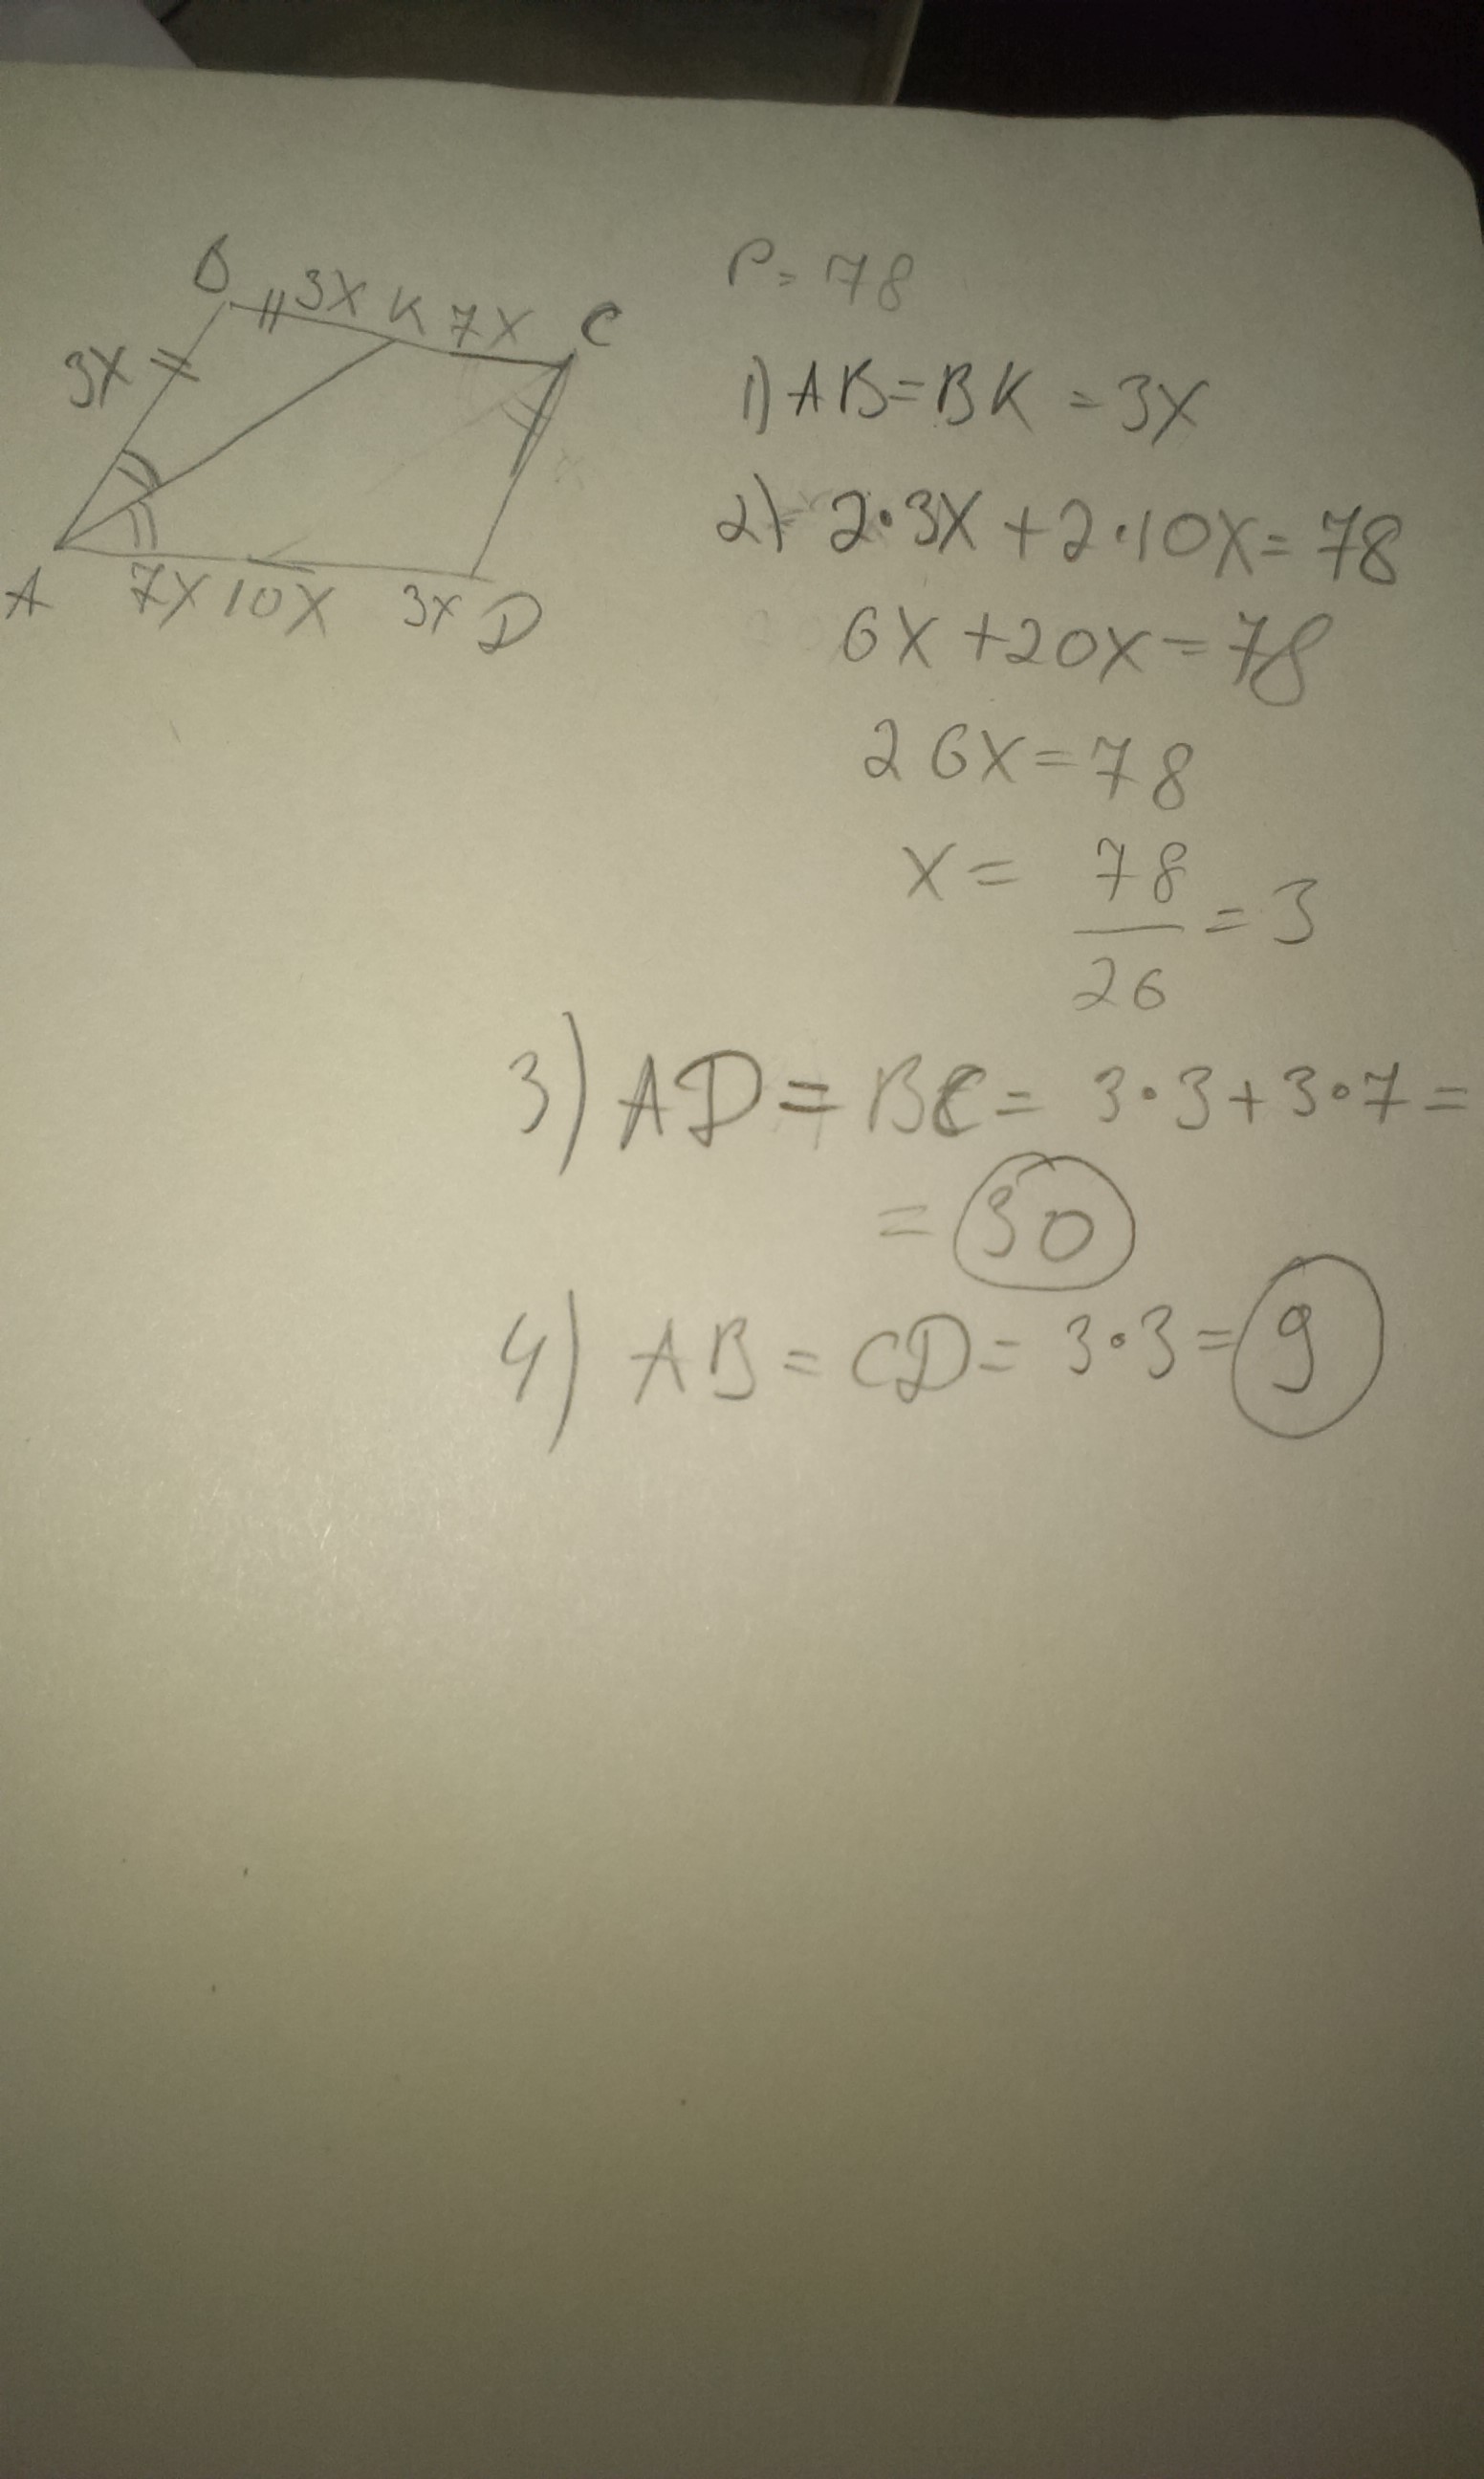 B 3X K 7X C
3X
A 7X 10X 3X D
P = 78
1) AB = BK = 3X
2) 2·3X + 2·10X = 78
6X + 20X = 78
26X = 78
X = 78/26 = 3
3) AD = BC = 3·3 + 3·7 =
= 30
4) AB = CD = 3·3 = 9